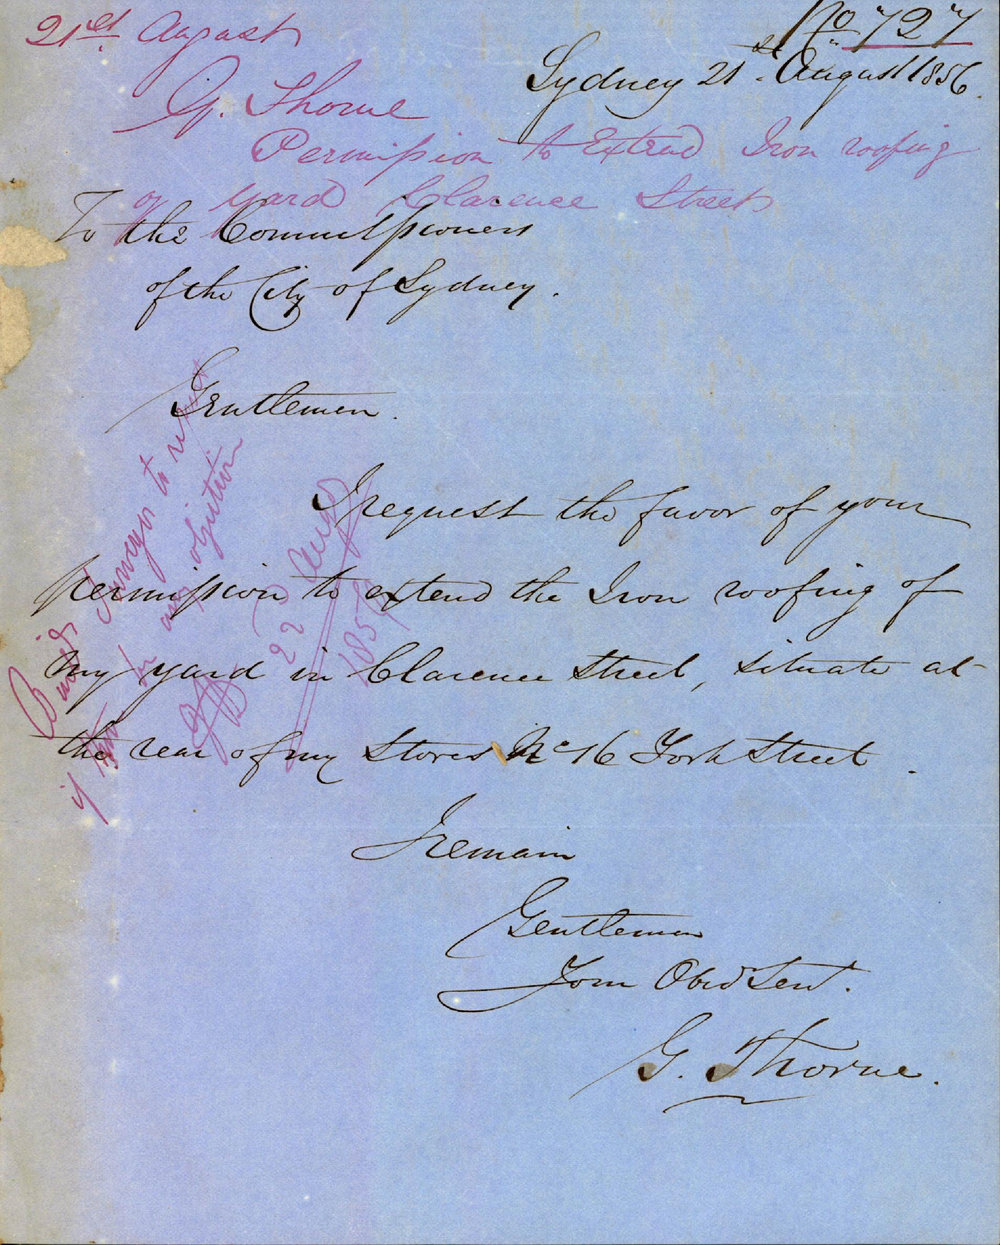 No 727
21st August
Sydney 21st August 1856.
G. Thorne
Permission to Extend Iron roofing
of yard Clarence Street
To the Commissioners
of the City of Sydney.
Gentlemen.
I request the favor of your
permission to extend the Iron roofing of
my yard in Clarence Street, situate at
the rear of my Stores No 16 York Street.
I remain
Gentlemen
Your Obed Servt.
G. Thorne.
Surveyor to report
if any objection
22d Augt
1856